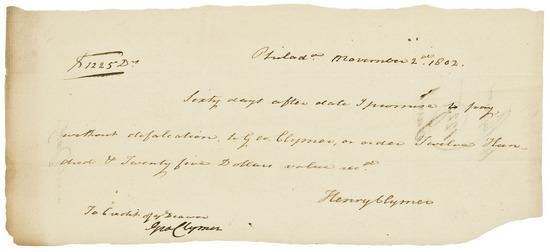 $ 1225 Ds
Philada. November 2d. 1802.
Sixty days after date I promise to pay
without defalcation, to Geo Clymer, or order Twelve Hun-
dred & Twenty five Dollars value recd.
Henry Clymer
To Credit of ye Drawer
Geo Clymer